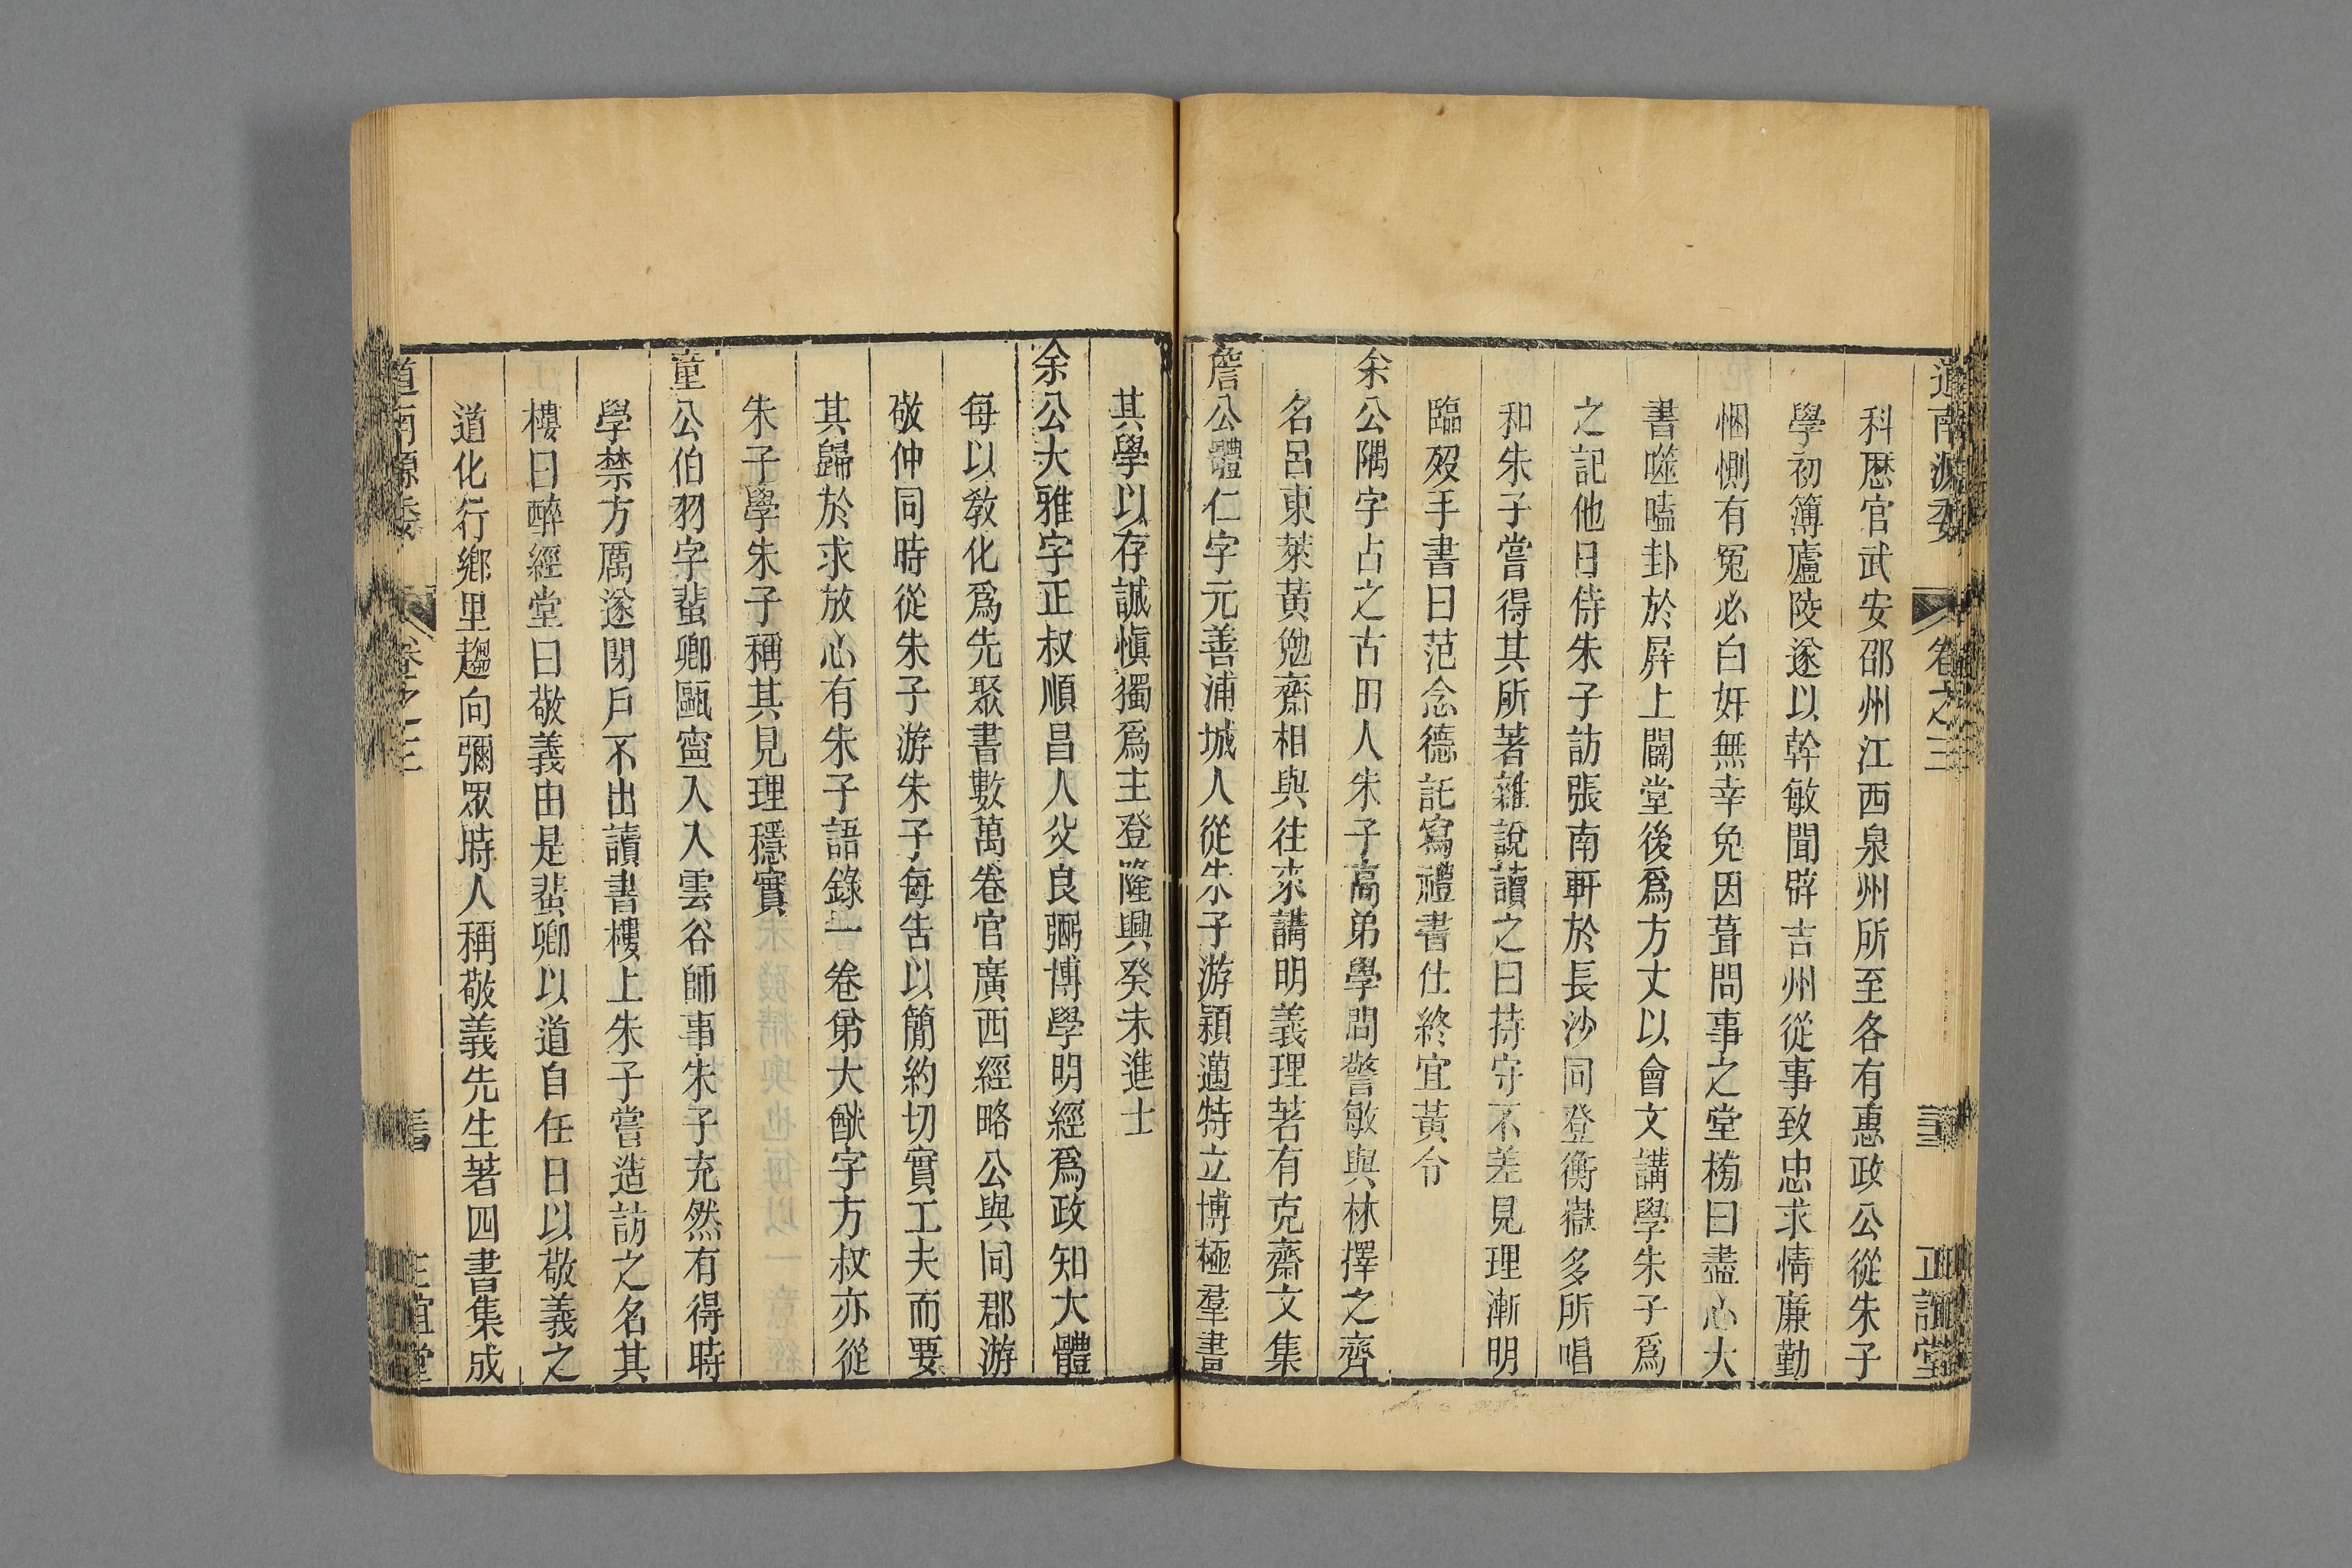 道南源委
卷之三
正誼堂
科歷官武安邵州江西泉州所至各有惠政公從朱子
學初簿廬陵遂以幹敏聞辟吉州從事致忠求情廉勤
悃惻有冤必白奸無幸免因葺問事之堂榜曰盡心大
書噬嗑卦於屏上闢堂後爲方丈以會文講學朱子爲
之記他日侍朱子訪張南軒於長沙同登衡嶽多所唱
和朱子嘗得其所著雜說讀之曰持守不差見理漸明
臨歿手書曰范念德託寫禮書仕終宜黃令
余公隅字占之古田人朱子高弟學問警敏與林擇之齊
名呂東萊黃勉齋相與往來講明義理著有克齋文集
詹公體仁字元善浦城人從朱子游穎邁特立博極羣書
其學以存誠愼獨爲主登隆興癸未進士
余公大雅字正叔順昌人父良弼博學明經爲政知大體
每以教化爲先聚書數萬卷官廣西經略公與同郡游
敬仲同時從朱子游朱子每吿以簡約切實工夫而要
其歸於求放心有朱子語錄一卷弟大猷字方叔亦從
朱子學朱子稱其見理穩實
童公伯羽字蜚卿甌寧人入雲谷師事朱子充然有得時
學禁方厲遂閉戶不出讀書樓上朱子嘗造訪之名其
樓曰醉經堂曰敬義由是蜚卿以道自任日以敬義之
道化行鄉里趨向彌眾時人稱敬義先生著四書集成
道南源委
卷之三
正誼堂